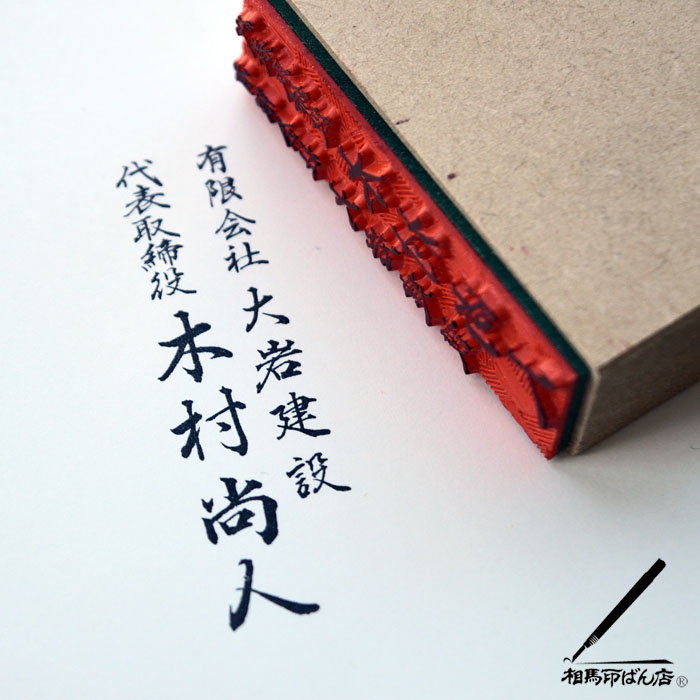 有限会社 大岩建設
代表取締役 木村尚人
相馬印ばん店®